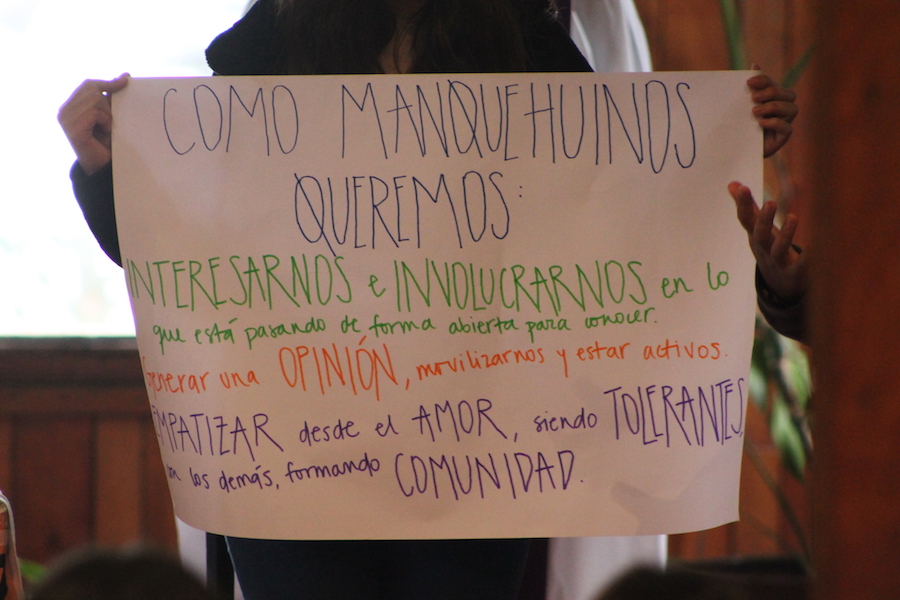 COMO MANQUEHUINOS
QUEREMOS:
INTERESARNOS e INVOLUCRARNOS en lo
que está pasando de forma abierta para conocer.
generar una OPINIÓN, movilizarnos y estar activos.
EMPATIZAR desde el AMOR, siendo TOLERANTES,
con los demás, formando COMUNIDAD.